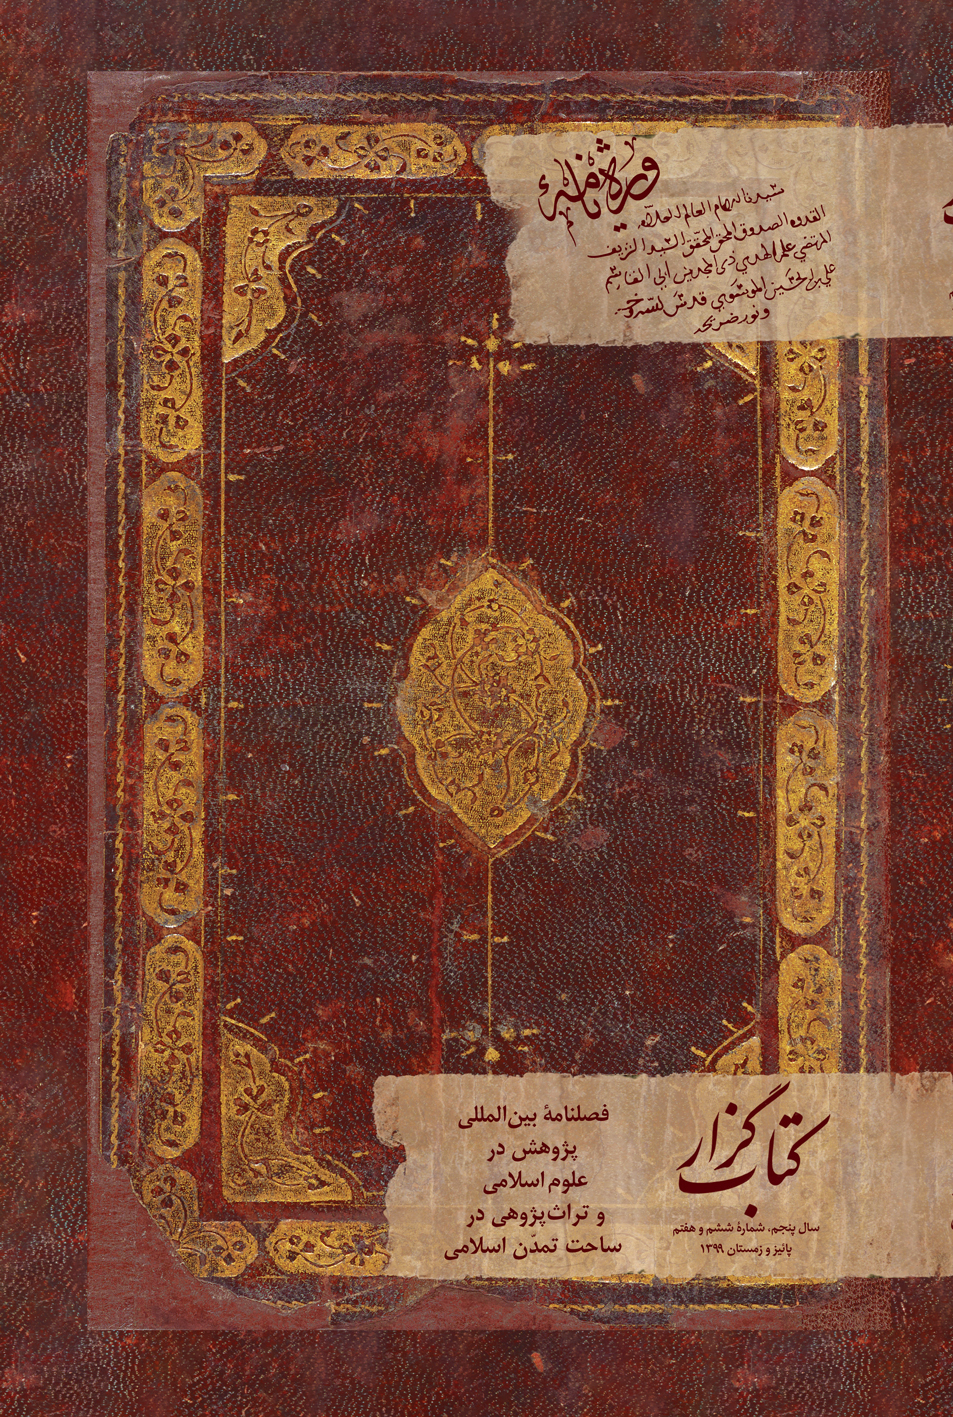 ویژه‌نامهٔ
سیدنا الامام العالم العلامه
القدوه الصدوق المحق المحقق السید الشریف
المرتضی علم الهدی ذی المجدین ابی القاسم
علی بن الحسین الموسوی قدس سره
و نور ضریحه
کتاب گزار
سال پنجم، شمارهٔ ششم و هفتم
پائیز و زمستان ۱۳۹۹
فصلنامهٔ بین‌المللی
پژوهش در
علوم اسلامی
و تراث‌پژوهی در
ساحت تمدّن اسلامی